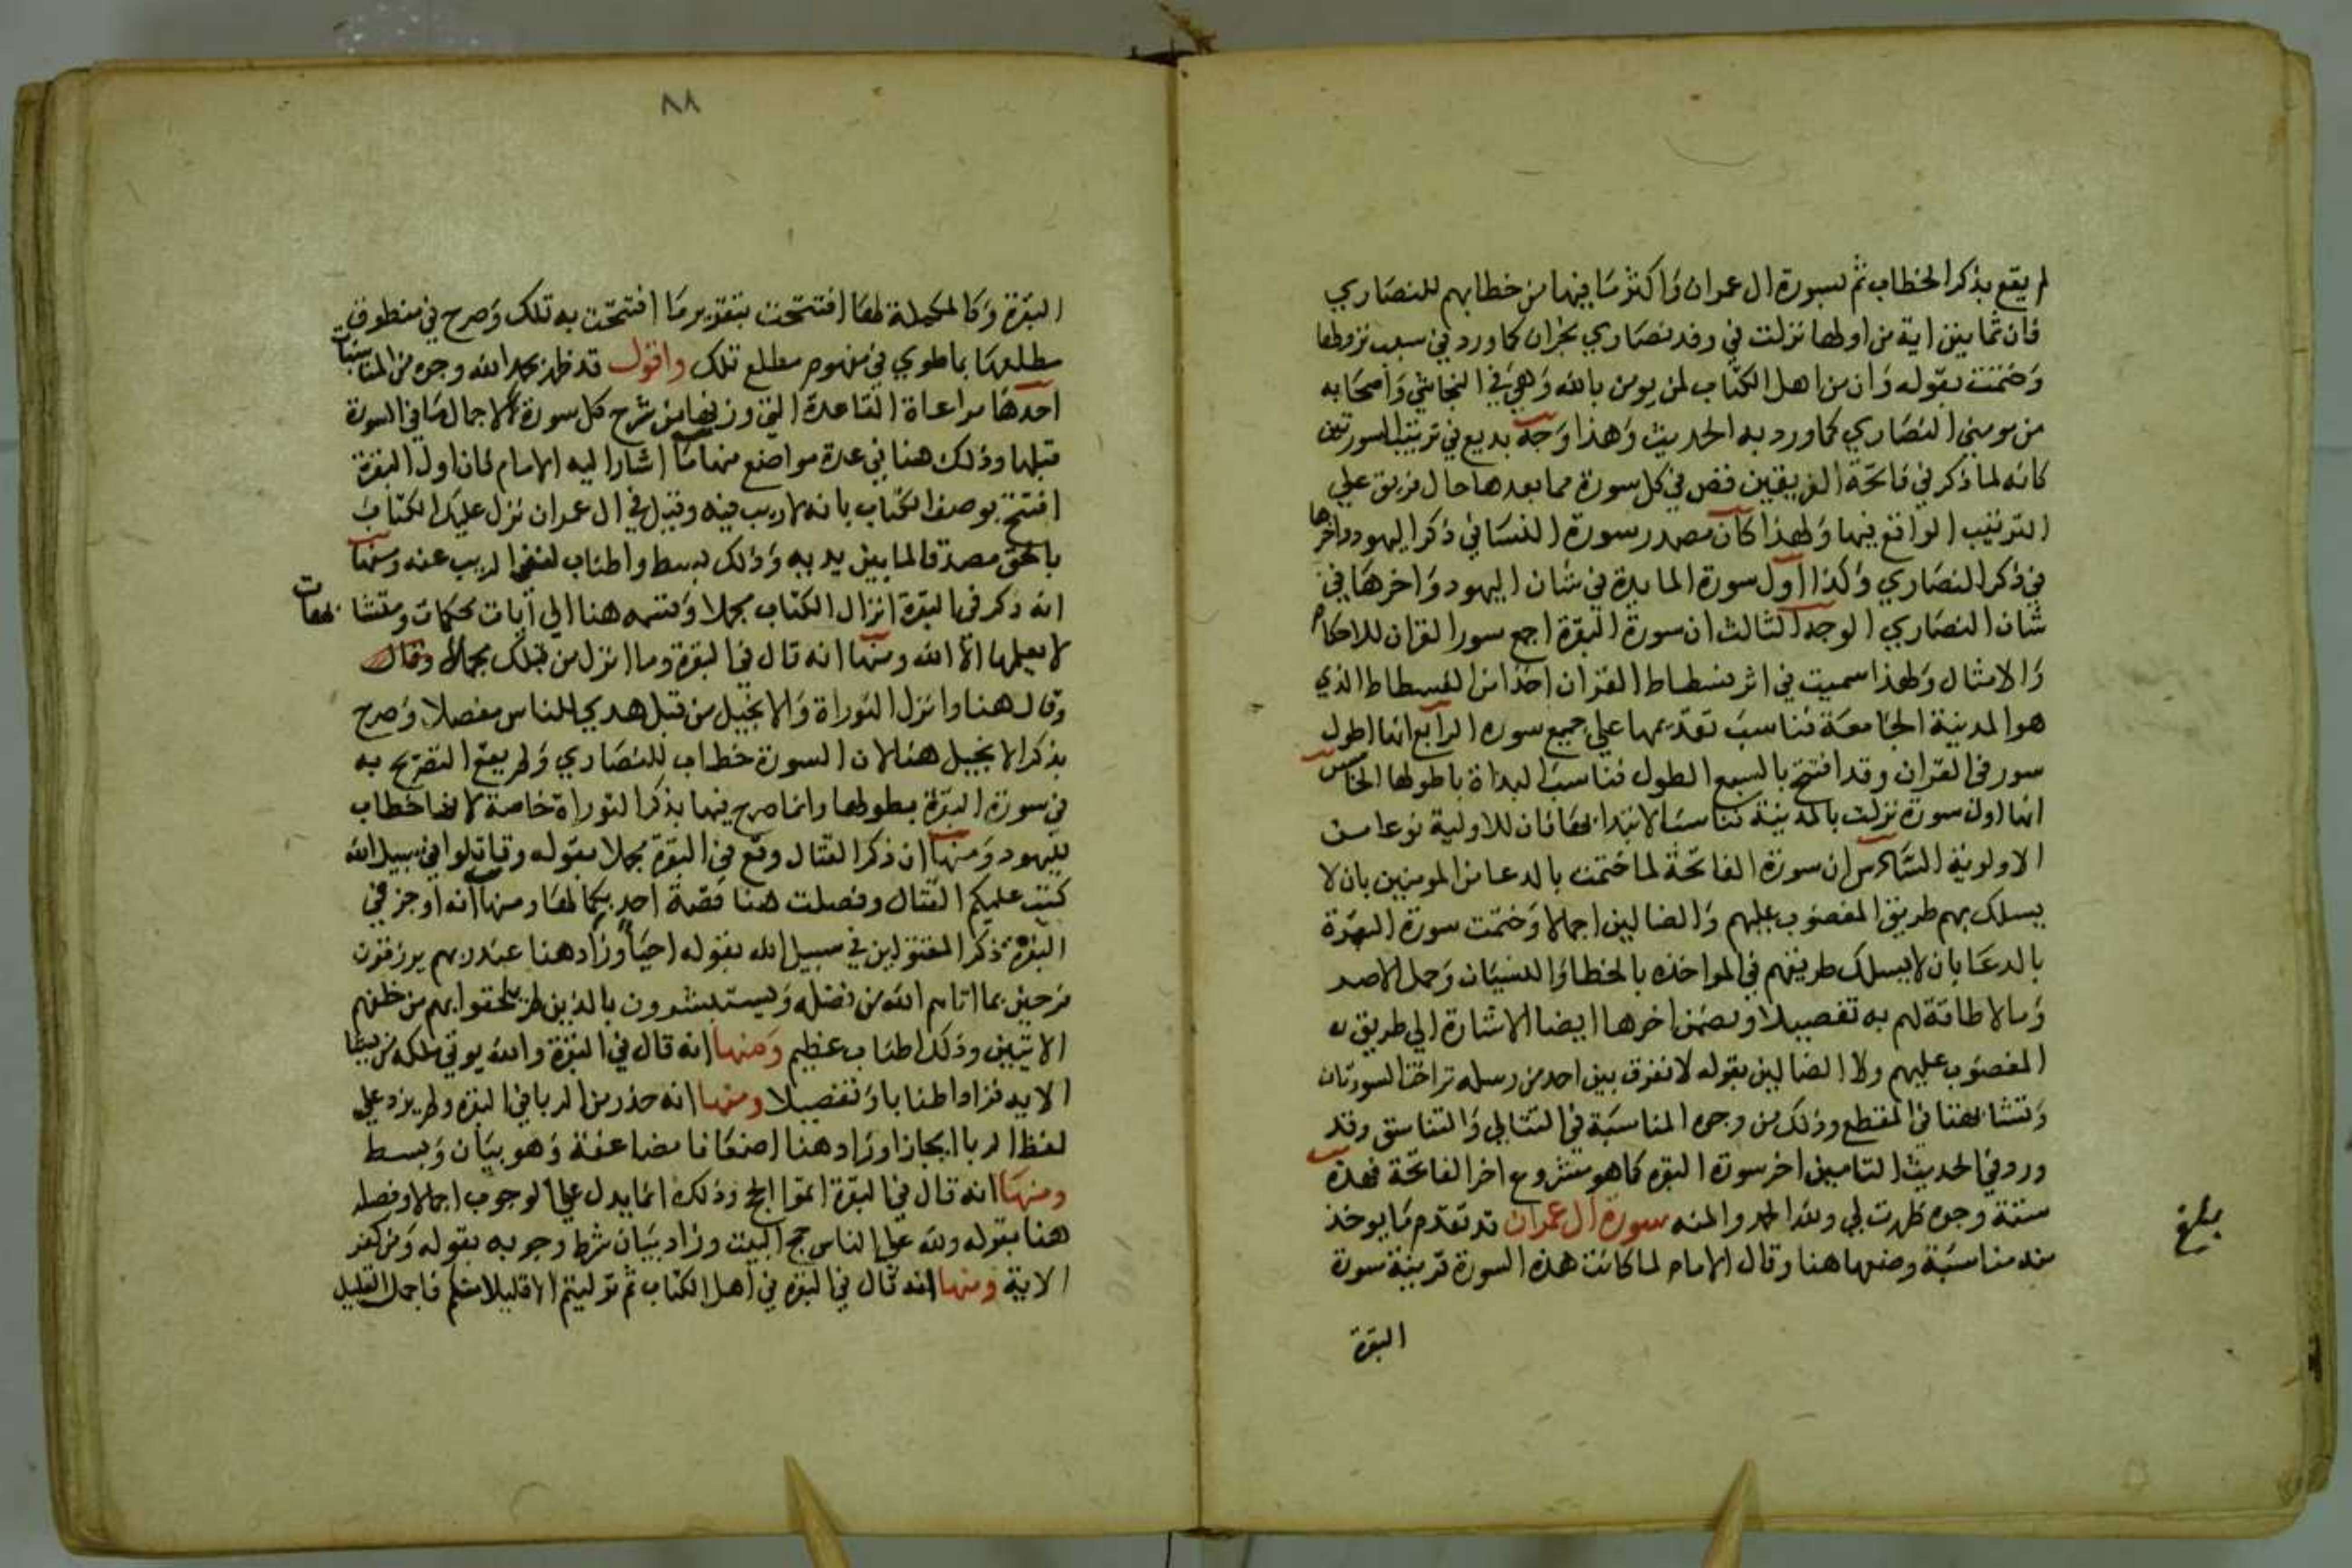 لم يقع بذكر الخطاب ثم لسورة ال عمران واكثر ما فيها من خطابهم للنصاري
فان ثمانين اية من اولها نزلت في وفد نصاري نجران كما ورد في سبب نزولها
وختمت بقوله وان من اهل الكتاب لمن يومن بالله وهي في النجاشي واصحابه
من مومني النصاري كما ورد به الحديث وهذا وجه بديع في ترتيب السورتين
كانه لما ذكر في فاتحة الفريقين قص في كل سورة مما بعدها حال فريق علي
الترتيب الواقع فيها ولهذا كان صدر سورة النسا في ذكر اليهود واخرها
في ذكر النصاري وكذا اول سورة المايدة في شان اليهود واخرها في
شان النصاري الوجه الثالث ان سورة البقرة اجمع سور القران للاحكام
والامثال ولهذا سميت في اثر فسطاط القران اخذا من الفسطاط الذي
هو المدينة الجامعة فناسب تقديمها علي جميع سوره الرابع انها اطول
سور في القران وقد افتتح بالسبع الطول فناسب البداة باطولها الخامس
انها اول سورة نزلت بالمدينة فناسب الابتدا بها فان للاولية نوعا من
الاولوية السادس ان سورة الفاتحة لما ختمت بالدعا من المومنين بان لا
يسلك بهم طريق المغضوب عليهم والضالين اجمالا وختمت سورة البقرة
بالدعا بان لا يسلك طريقهم في المواخذه بالخطا والنسيان وحمل الاصر
وما لا طاقة لهم به تفصيلا وتضمن اخرها ايضا الاشارة الي طريق
المغضوب عليهم ولا الضالين بقوله لا نفرق بين احد من رسله تراخت السورتان
وتشابهتا في المقطع وذلك من وجوه المناسبة في التتالي والتناسق وقد
ورد في الحديث التامين اخر سورة البقره كما هو مشروع اخر الفاتحة فهذه
ستة وجوه ظهرت لي ولله الحمد والمنه سورة ال عمران قد تقدم ما يوخذ
منه مناسبة وضعها هنا وقال الامام لما كانت هذه السورة قرينة سورة
بلغ
البقرة
٨٨
البقرة وكالمكملة لها افتتحت بتقرير ما افتتحت به تلك وصرح في منطوق
مطلعها بما طوي في مفهوم مطلع تلك واقول قد ظهر بحمد الله وجوه من المناسبات
احدها مراعاة القاعدة التي من شرح كل سورة لاجمال ما في السورة
قبلها وذلك هنا في عدة مواضع منها ما اشار اليه الامام فان اول البقرة
افتتح بوصف الكتاب بانه لا ريب فيه وقيل في ال عمران نزل عليك الكتاب
بالحق مصدقا لما بين يديه وذلك بسط واطناب لنفي الريب عنه ومنها
انه ذكر في البقرة انزال الكتاب مجملا وقسمه هنا الي آيات محكمات ومتشابهات
لا يعلمها الا الله ومنها انه قال في البقرة وما انزل من قبلك مجملا وقال
وقال هنا وانزل التوراة والانجيل من قبل هدي للناس مفصلا وصرح
بذكر الانجيل هنا لان السورة خطاب للنصاري ولم يقع التصريح به
في سورة البقرة بطولها وانما صرح فيها بذكر التوراة خاصة لانها خطاب
لليهود ومنها ان ذكر القتال وقع في البقرة مجملا بقوله وقاتلوا في سبيل الله
كتب عليكم القتال وفصلت هنا قصة احد بكمالها ومنها انه اوجز في
البقرة ذكر المقتولين في سبيل الله بقوله احيا وزاد هنا عند ربهم يرزقون
فرحين بما اتاهم الله من فضله ويستبشرون بالذين لم يلحقوا بهم من خلفهم
الايتين وذلك اطناب عظيم ومنها انه قال في البقرة والله يوتي ملكه من يشا
الايه فزاد اطنابا وتفصيلا ومنها انه حذر من الربا في البقره ولم يزد علي
لفظ الربا ايجازا وزاد هنا اضعافا مضاعفة وهو بيان وبسط
ومنها انه قال في البقرة اتموا الحج وذلك انما يدل علي الوجوب اجمالا وفصله
هنا بقوله ولله علي الناس حج البيت وزاد بيان شرط وجوبه بقوله ومن كفر
الاية ومنها انه قال في البقره في اهل الكتاب ثم توليتم الا قليلا منكم فاجمل القليل